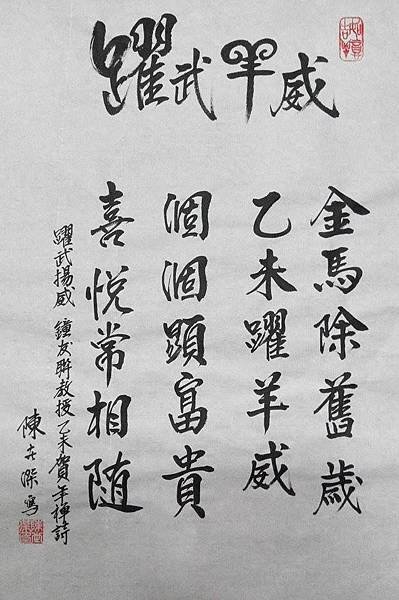 躍武羊威
金馬除舊歲
乙未躍羊威
個個顯富貴
喜悅常相随
躍武揚威 鐘友聯教授乙未賀年禪詩
陳世傑寫